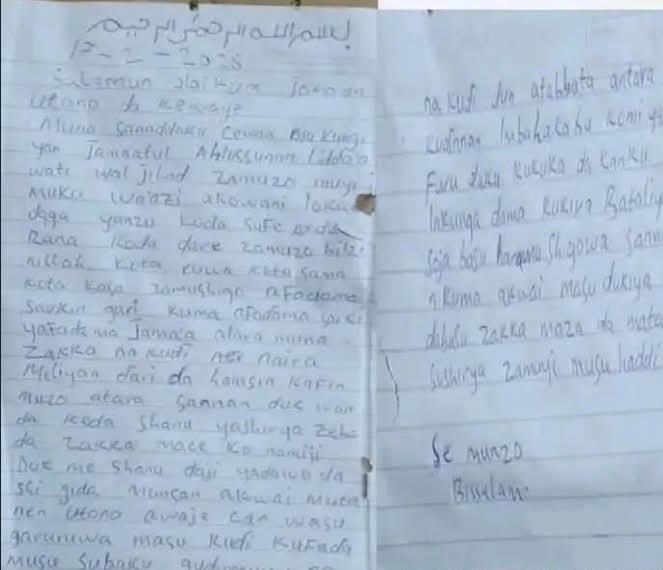 بسم الله الرحمن الرحيم
17-2-2026
Salamun alaikum Jama an
Utono da kewaye
Muna sanaddaku cewa mu Kungi
yan Jamaatul Ahlussunna Lidda'a
wati wal jihad zamuzo muyi
muku wa'azi akowani loka
daga yanzu koda Sufe
Rana koda dare zamuzo bi
nillah kota ruwa kota sama
kota kasa zamushigo afadama
Sarkin gari kuma afadama
yafadama Jamaa atara muna
Zakka na kudi nei naira
Meliyan dari da hamsin kafin
muzo atara sannan duk wan
da keda shanu yashirya
da zakka mace ko namiji
Duk me shanu daji yadawo da
sei gida Mutanan akwai muta
nen Utono awaje can wasu
garuruwa masu kudi kufada
musu subaku
na kudi dun atahbata antara
kudinnan lubahakaba
Faru daku kukuka da kanku
inkunga dama kukira Bataliy
Soja basu hanamu shigowa sann
n kuma akwai masu dukiya
dubasu zakka maza da mata
sushirya zamuyi musu haddi
Se munzo
Bissalam.